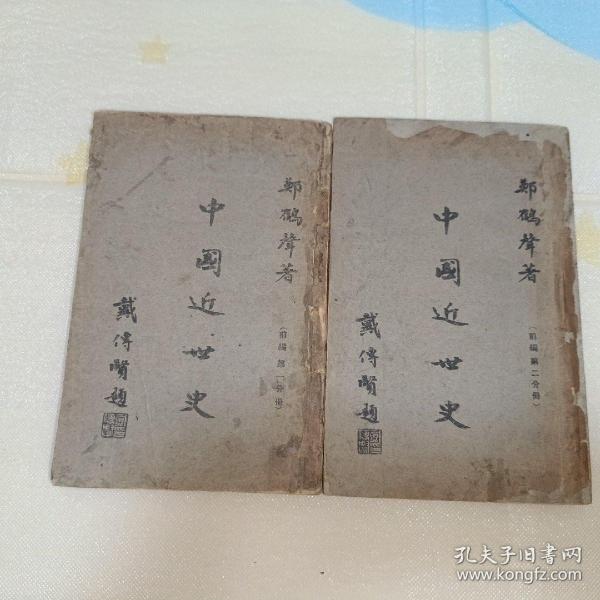 鄭鶴聲著
中國近世史
(前編第一分冊)
戴傳賢題
鄭鶴聲著
中國近世史
(前編第二分冊)
戴傳賢題
孔夫子旧书网
www.kongfz.com